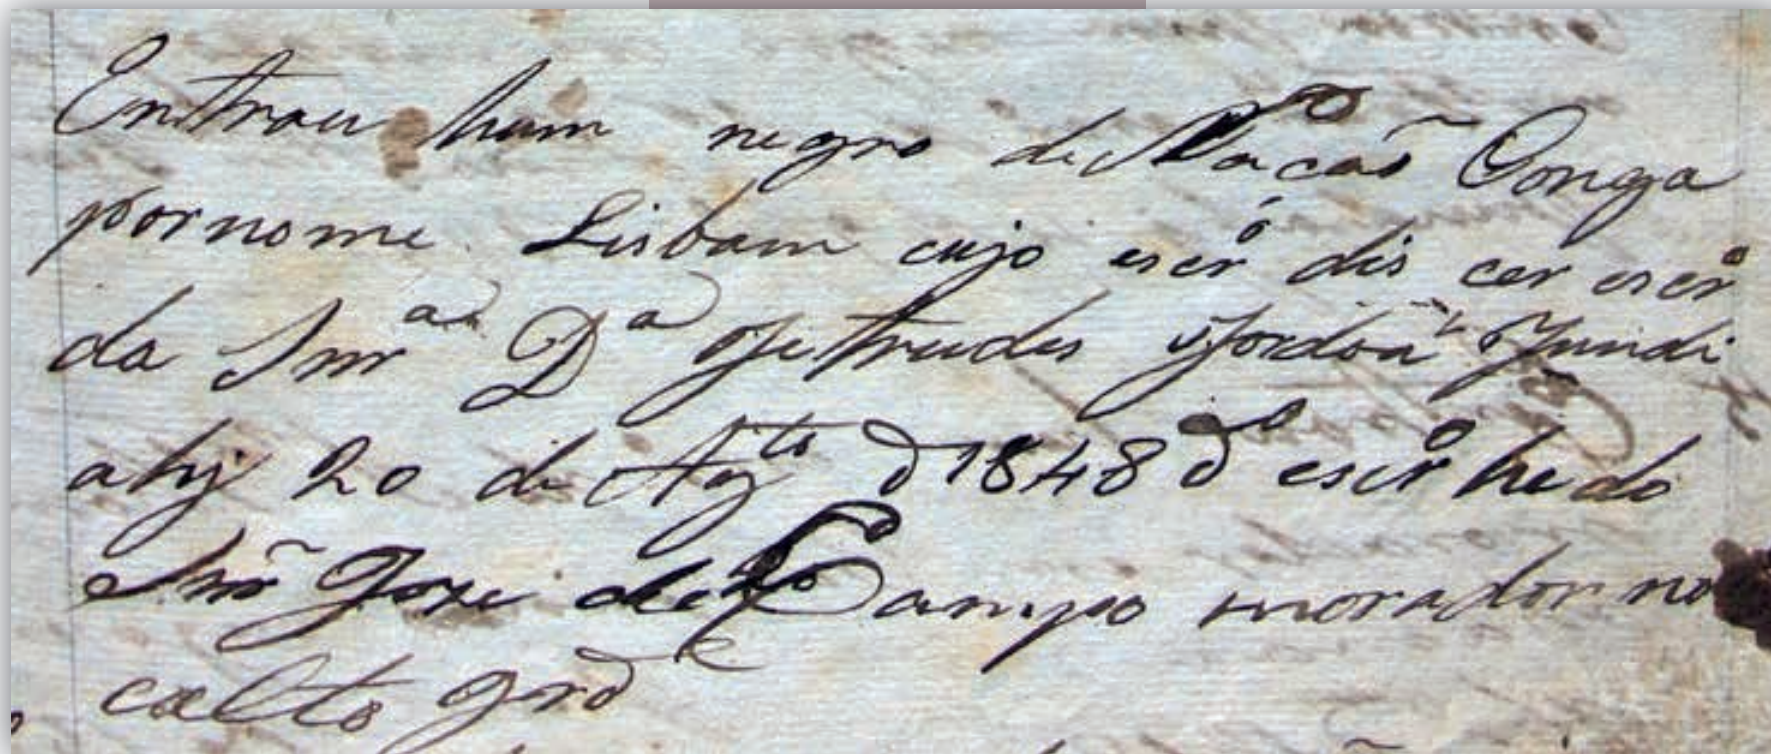 Entrou hum negro de Nacaõ Conga
por nome Lisbam cujo escrº dis cer escrº
da Snrª Dª Getrudes Jordaõ Jundi
ahy 20 de Agto d 1848 dº escrº he do
Snr̃ Joze de Campo morador no
calto grde